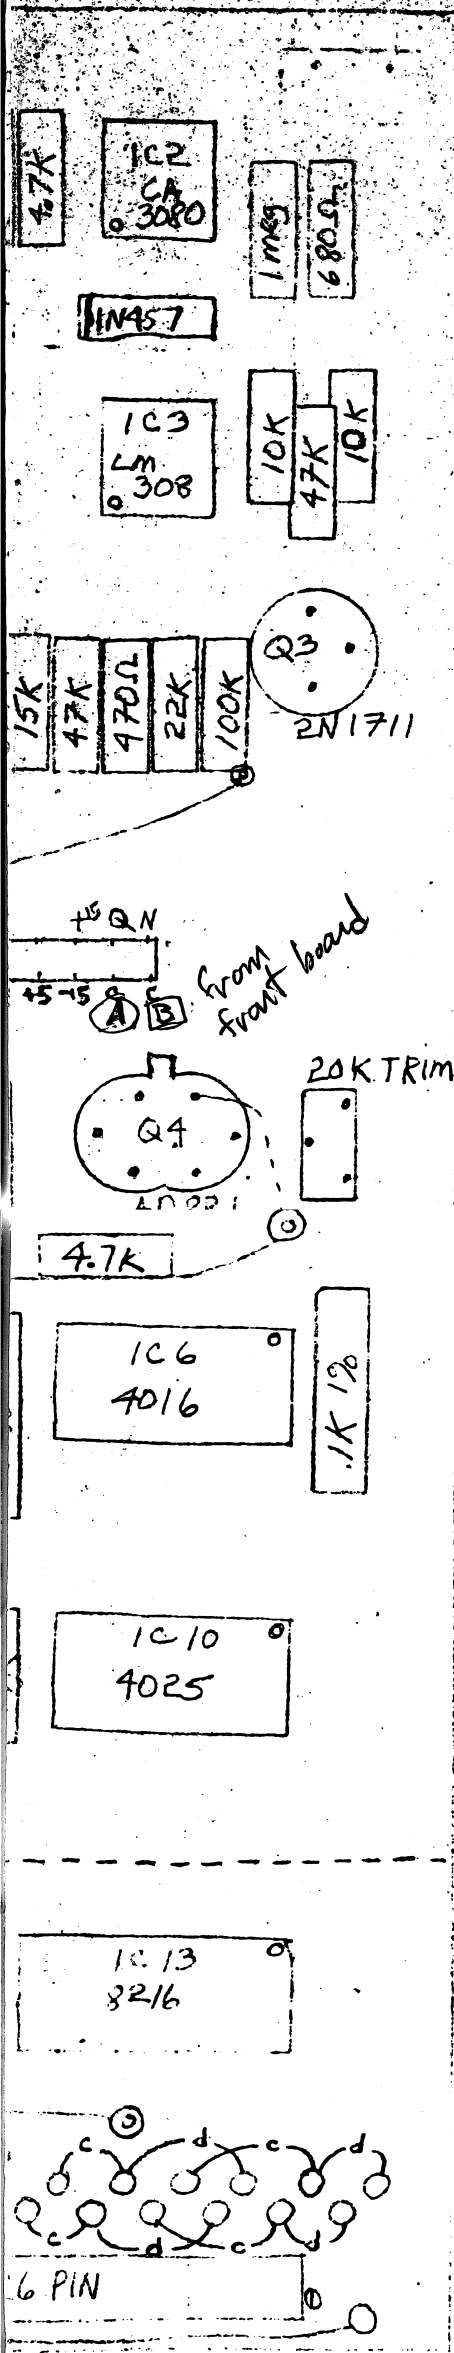 4.7K
IC2
CA
3080
1 meg
680Ω
1N457
IC3
LM
308
10K
47K
10K
15K
47K
470Ω
22K
100K
Q3
2N1711
+15 Q N
+5 -15 c c
A B
from
front board
20K TRIM
Q4
4.7K
IC6
4016
.1K 1%
IC10
4025
IC13
8216
c d c d
c d c d
6 PIN